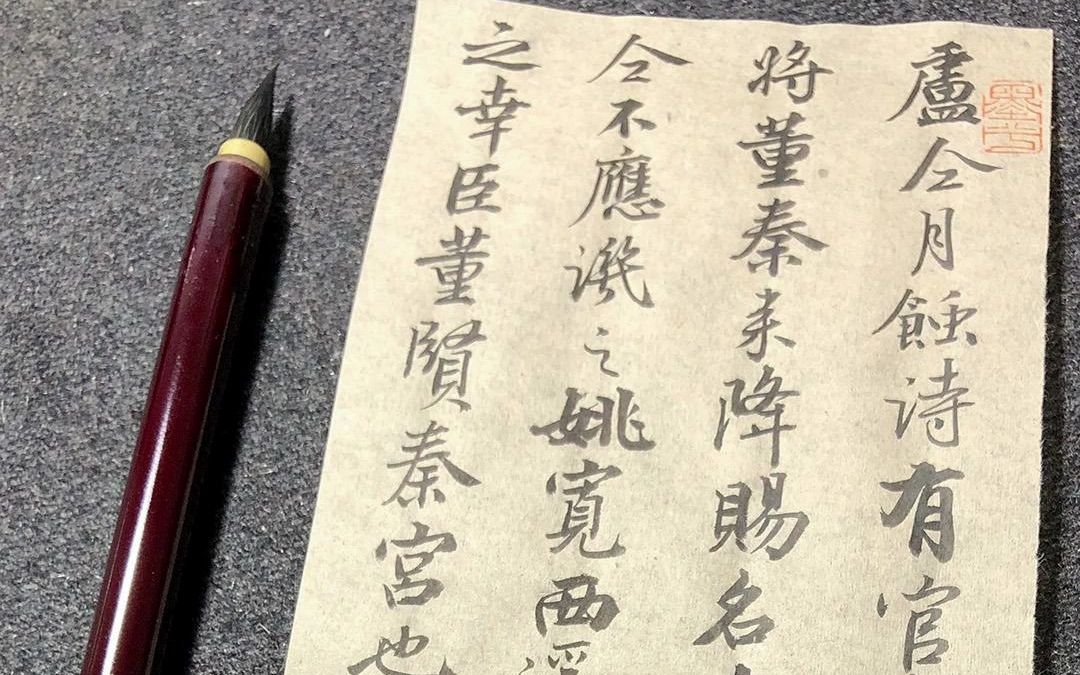 盧仝月蝕詩有官
将董秦来降賜名
仝不應譏之姚寬西溪
之幸臣董賢秦宮也